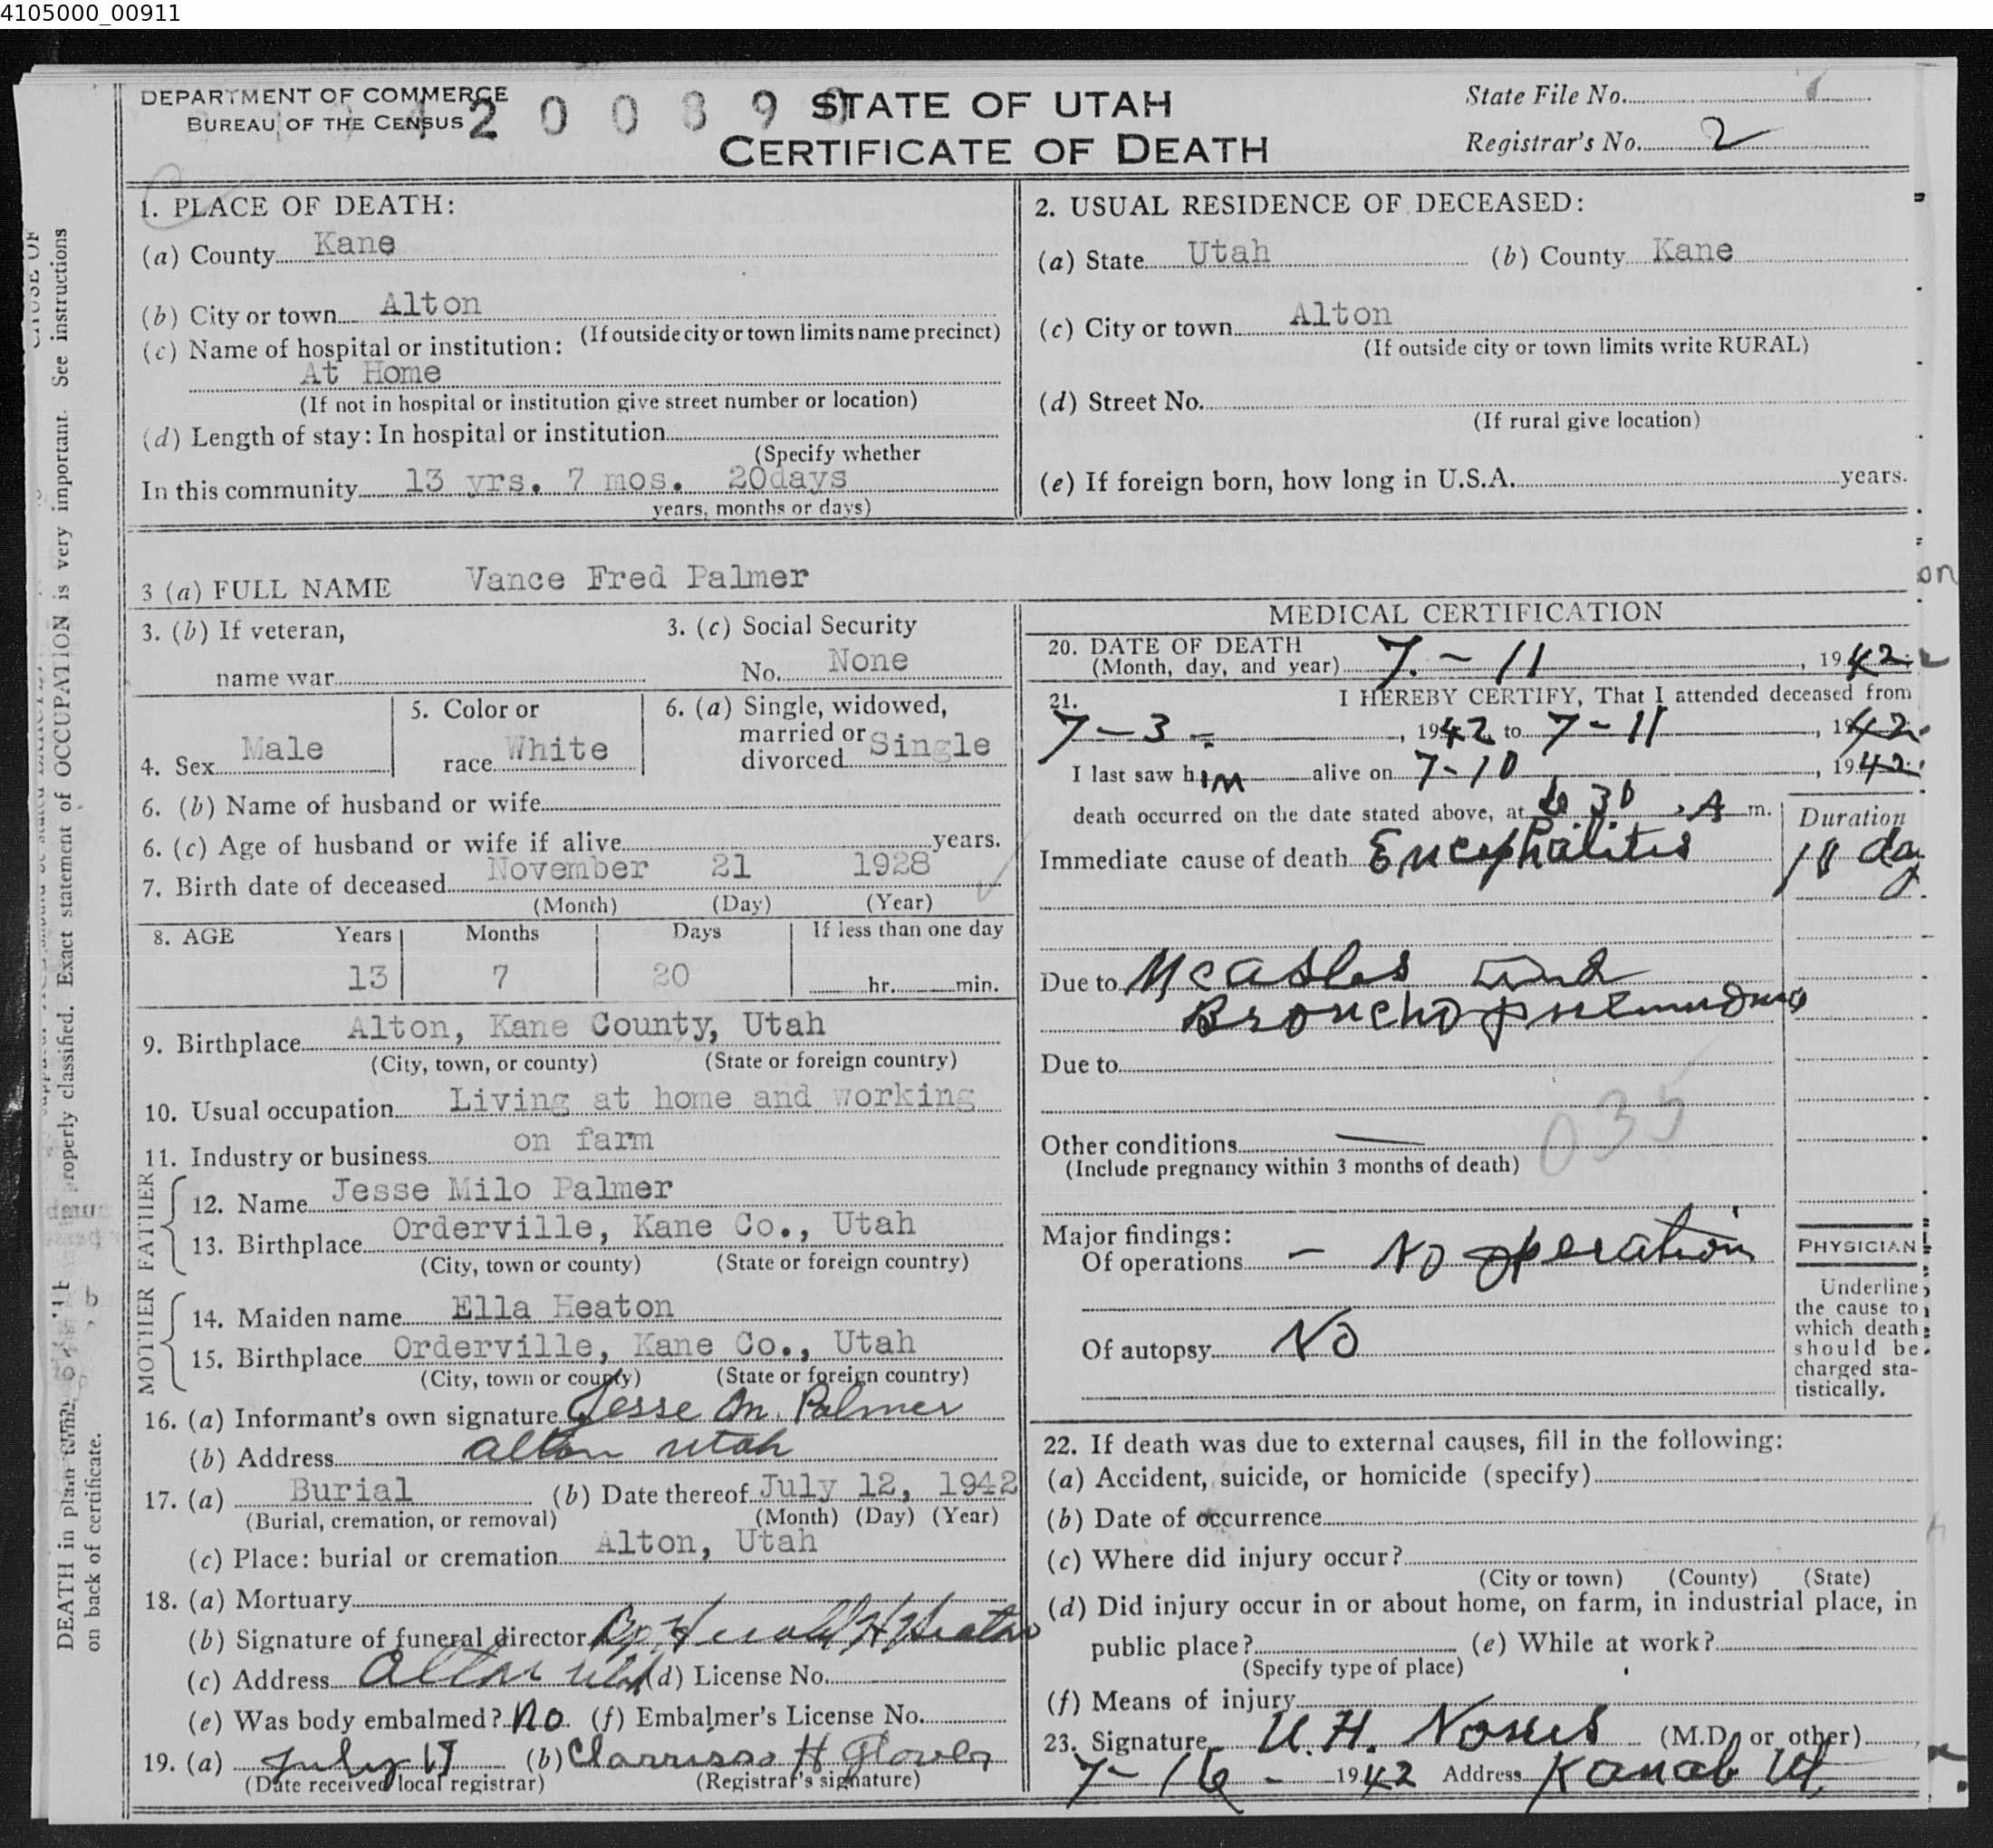 4105000_00911
DEPARTMENT OF COMMERCE
BUREAU OF THE CENSUS
4 2 0 0 8 9
STATE OF UTAH
CERTIFICATE OF DEATH
State File No.
Registrar's No. 2
1. PLACE OF DEATH:
(a) County Kane
(b) City or town Alton
(If outside city or town limits name precinct)
(c) Name of hospital or institution:
At Home
(If not in hospital or institution give street number or location)
(d) Length of stay: In hospital or institution
(Specify whether
In this community 13 yrs. 7 mos. 20days
years, months or days)
2. USUAL RESIDENCE OF DECEASED:
(a) State Utah (b) County Kane
(c) City or town Alton
(If outside city or town limits write RURAL)
(d) Street No.
(If rural give location)
(e) If foreign born, how long in U.S.A. years.
3 (a) FULL NAME Vance Fred Palmer
3. (b) If veteran,
name war
3. (c) Social Security
No. None
4. Sex Male
5. Color or
race White
6. (a) Single, widowed,
married or
divorced Single
6. (b) Name of husband or wife
6. (c) Age of husband or wife if alive years.
7. Birth date of deceased November 21 1928
(Month) (Day) (Year)
8. AGE Years Months Days If less than one day
13 7 20 hr. min.
9. Birthplace Alton, Kane County, Utah
(City, town, or county) (State or foreign country)
10. Usual occupation Living at home and working
11. Industry or business on farm
FATHER
12. Name Jesse Milo Palmer
13. Birthplace Orderville, Kane Co., Utah
(City, town or county) (State or foreign country)
MOTHER
14. Maiden name Ella Heaton
15. Birthplace Orderville, Kane Co., Utah
(City, town or county) (State or foreign country)
16. (a) Informant's own signature Jesse M. Palmer
(b) Address alton utah
17. (a) Burial (b) Date thereof July 12, 1942
(Burial, cremation, or removal) (Month) (Day) (Year)
(c) Place: burial or cremation Alton, Utah
18. (a) Mortuary
(b) Signature of funeral director H Heaton
(c) Address Alton Utah (d) License No.
(e) Was body embalmed? No. (f) Embalmer's License No.
19. (a) July 17 (b) Clarrissa H Glover
(Date received local registrar) (Registrar's signature)
MEDICAL CERTIFICATION
20. DATE OF DEATH
(Month, day, and year) 7 - 11, 1942
21. I HEREBY CERTIFY, That I attended deceased from
7-3, 1942 to 7-11, 1942
I last saw him alive on 7-10, 1942
death occurred on the date stated above, at 6 30 A m.
Duration
Immediate cause of death Encephalitis 10 day
Due to Measles and
Bronchopneumonia
Due to
Other conditions
(Include pregnancy within 3 months of death)
035
Major findings:
Of operations - No operation
Of autopsy No
PHYSICIAN
Underline
the cause to
which death
should be
charged sta-
tistically.
22. If death was due to external causes, fill in the following:
(a) Accident, suicide, or homicide (specify)
(b) Date of occurrence
(c) Where did injury occur?
(City or town) (County) (State)
(d) Did injury occur in or about home, on farm, in industrial place, in
public place? (e) While at work?
(Specify type of place)
(f) Means of injury
23. Signature (M.D. or other)
7-16-1942 Address Kanab Ut.
properly classified. Exact statement of OCCUPATION is very important. See instructions
on back of certificate.